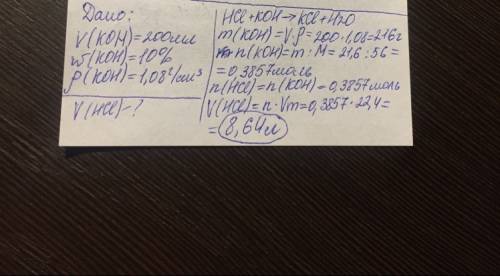 Дано:
V(KOH)=200мл
w(KOH)=10%
ρ(KOH)=1,08г/см³
V(HCl)-?
HCl+KOH→KCl+H2O
m(KOH)=V·ρ=200·1,08=216г
n(KOH)=m·M=21,6:56=
=0,3857моль
n(HCl)=n(KOH)=0,3857моль
V(HCl)=n·Vm=0,3857·22,4=
=8,64л